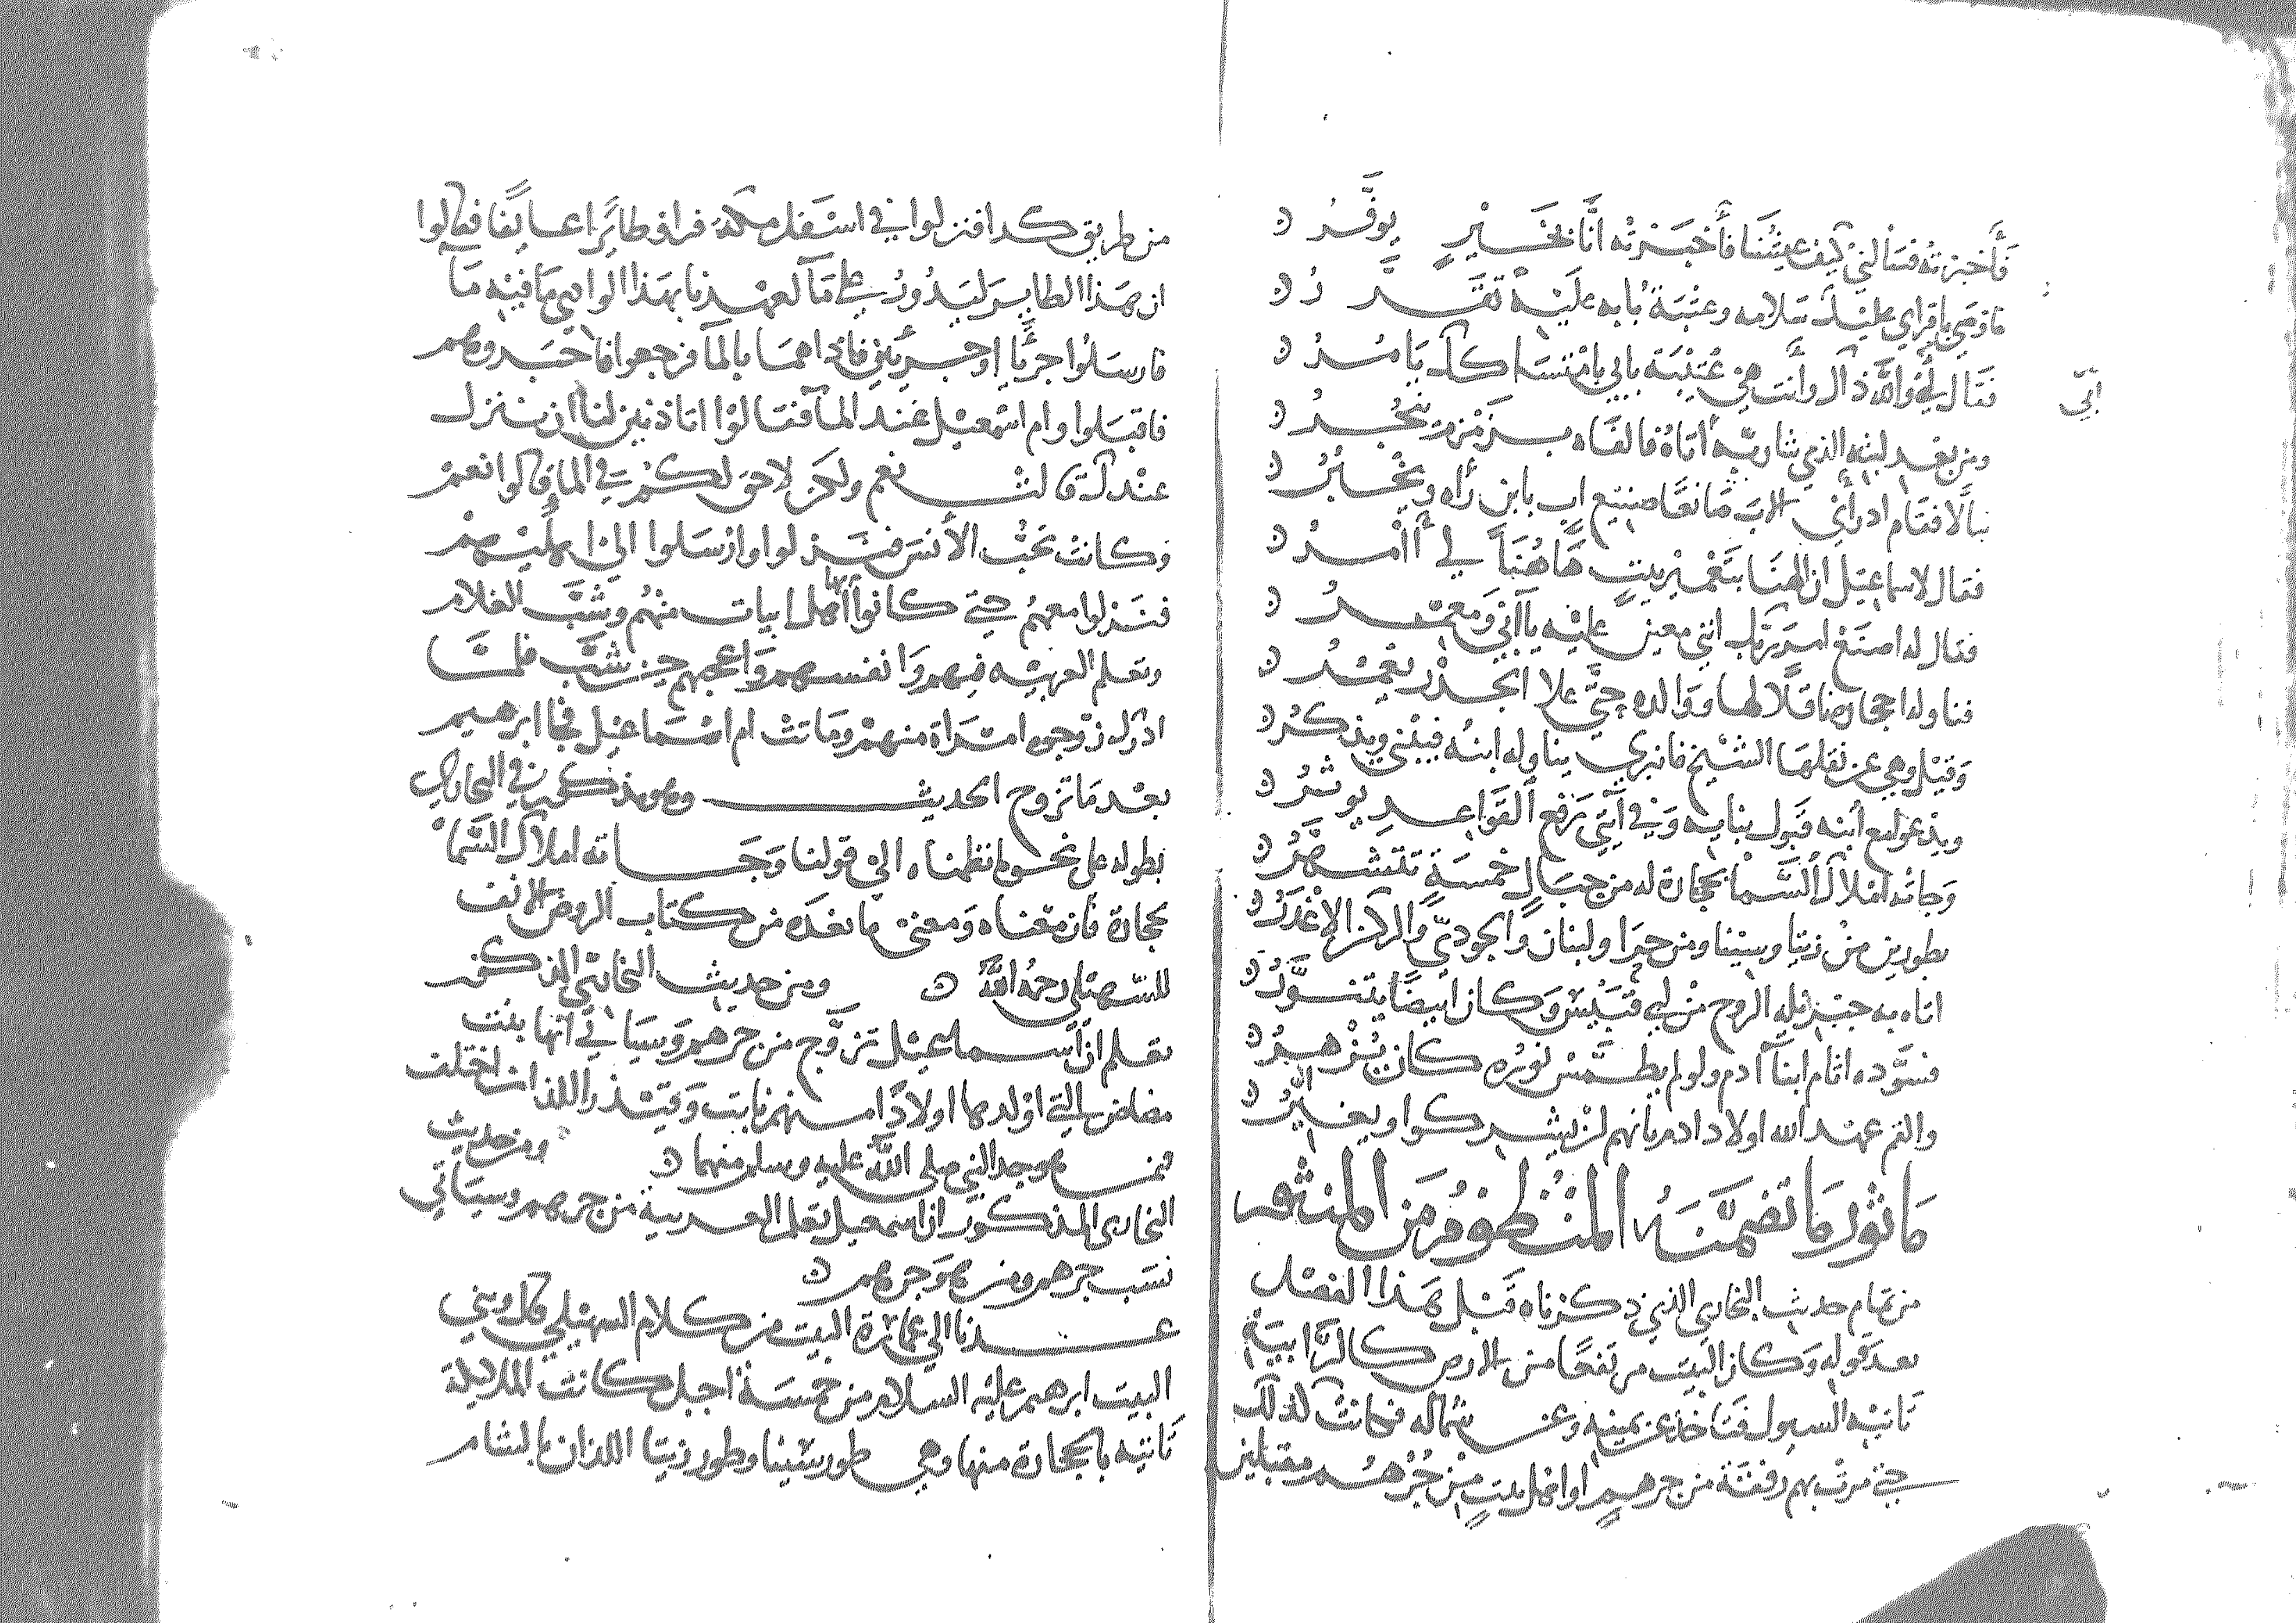 فأخبرته فسألني كيف عيشنا فأخبرته أنّا بخير يوفّرُ
فاوصى باقراي عليك سلامه وعتبة بابه عليه تقرّر
فقال وانه ذاك وأنت هي عتبة بابي بامتساكك يامر
أبي
ومن بعد لبثه الذي شا ربه أتاه فالفاه بزمزم ينجر
نبالا فقام اد رأى الاب صانعا صنيع اب بابن رآه ويحبر
فقال لاسماعيل ان الهنا بتعمير بيت هاهنا لي أأمر
فقال له اصنع امر ربك انني معين عليه يا ابي ومعمر
فناوله احجاره ناقلا لها ووالده حتى علا الجدر يعمر
وقيل وهي عن نقلها الشيخ فانبرى يناوله ابنه فيبني ويذكر
ويدعو مع ابنه قبول بنايه وفي آي يرفع القواعد يوثر
وجاته املاك السما بحجارة له من جبال خمسة تتشهر
بطورين من زيتا وسينا ومن حرا ولبنان والجودي والركن الاغدر
اتاه به جبريل الروح من ابي قبيس وكان ابيضا يتنور
فسوده اثام ابنا آدم ولو لم يطمس نوره كان يزهر
والقم عهد الله اولاد ادم بانهم لن يشركوا ويغيروا
ماثور ما تضمنه المنظوم من المنثور
من تمام حديث البخارى الذي ذكرناه قبل هذا الفصل
بعد قوله وكان البيت مرتفعا من الارض كالرابية
تاتيه السيول فتاخذ عن يمينه وعن شماله فكانت كذلك
حتى مرت بهم رفقة من جرهم او اهل بيت من جرهم مقبلين
من طريق كدا فنزلوا في اسفل مكة فراوا طائرا عايفا فقالوا
ان هذا الطاير ليدور على مآ لعهدنا بهذا الوادي ما فيه مآ
فارسلوا جريا او جريين فاذا هما بالمآ فرجعوا فاخبروهم
فاقبلوا وام اسمعيل عند المآ فقالوا اتاذنين لنا ان ننزل
عندك قالت نعم ولكن لا حق لكم في المآ قالوا نعم
وكانت تحب الأنس فنزلوا وارسلوا الى اهليهم
فنزلوا معهم حتى كانوا أهل ابيات منهم وشب الغلام
وتعلم العربيه منهم وانفسهم واعجبهم حين شب فلما
ادرك زوجوه امراة منهم وماتت ام اسماعيل فجا ابرهيم
بعد ما تزوج الحديث وهو مذكور في البخاري
بطوله على نحو ما نظمناه الى قولنا وجاته املاك السما
بحجارة فان معناه ومعنى ما بعده من كتاب الروض الانف
للسهيلى رحمه الله ومن حديث البخاري المذكور
تعلم ان اسماعيل تزوج من جرهم وسياتي انها بنت
مضاض التي اولدها اولادا منهم نابت وقيذر اللذان اختلف
فمن هو جد النبي صلى الله عليه وسلم منهما ومن حديث
البخارى المذكور ان اسمعيل تعلم العربية من جرهم وسياتي
نسب جرهم ومن هو جرهم
عدنا الى عمارة البيت من كلام السهيلي قال وبنى
البيت ابرهيم عليه السلام من خمسة اجبل كانت الملايكة
تاتيه بالحجارة منها وهي طور سينا وطور زيتا اللذان بالشام